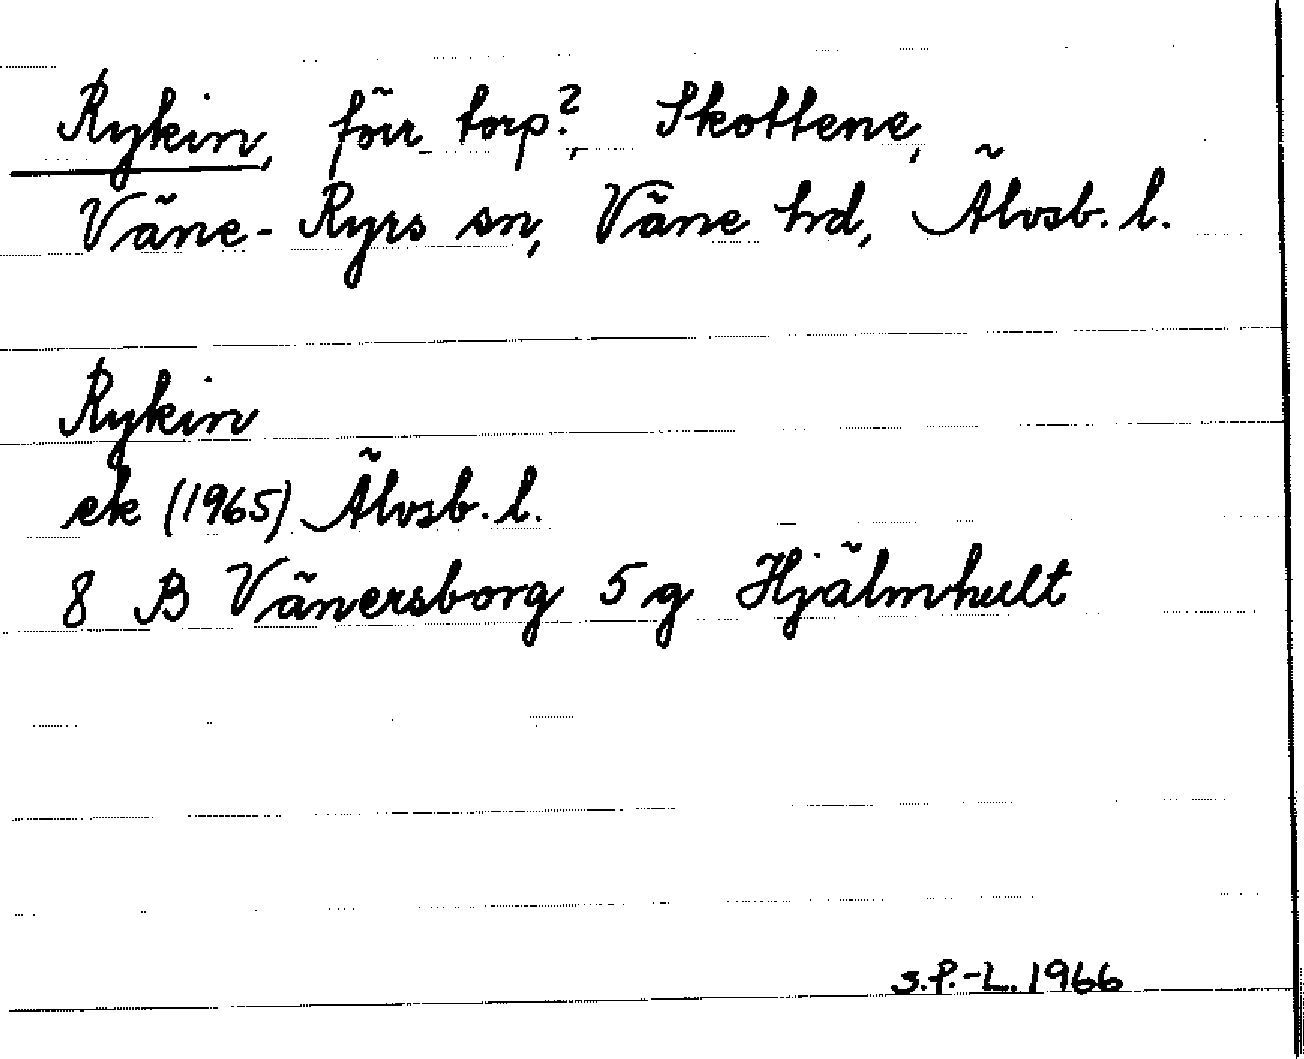 Rykin, förr torp?, Skottene,
Väne-Ryrs sn, Väne hd, Älvsb. l.
Rykin
ek (1965) Älvsb. l.
8 B Vänersborg 5 g Hjälmhult
S.P.-L. 1966